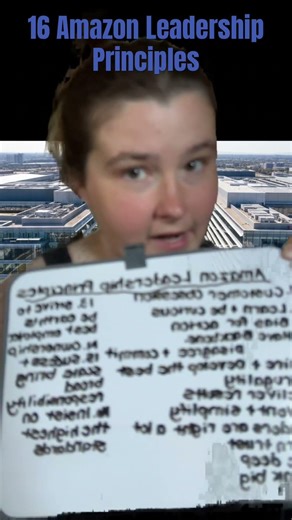 16 Amazon Leadership
Principles
Amazon Leadership Principles
Customer Obsession
Learn + be curious
Bias for action
Have Backbone
Disagree + commit
Develop the best
results
Simplify
are right a lot
trust
deep
big
13. Strive to
be earth's
best employer
Ownership
Success +
Scale bring
broad
responsibility
Insist on
the highest
standards